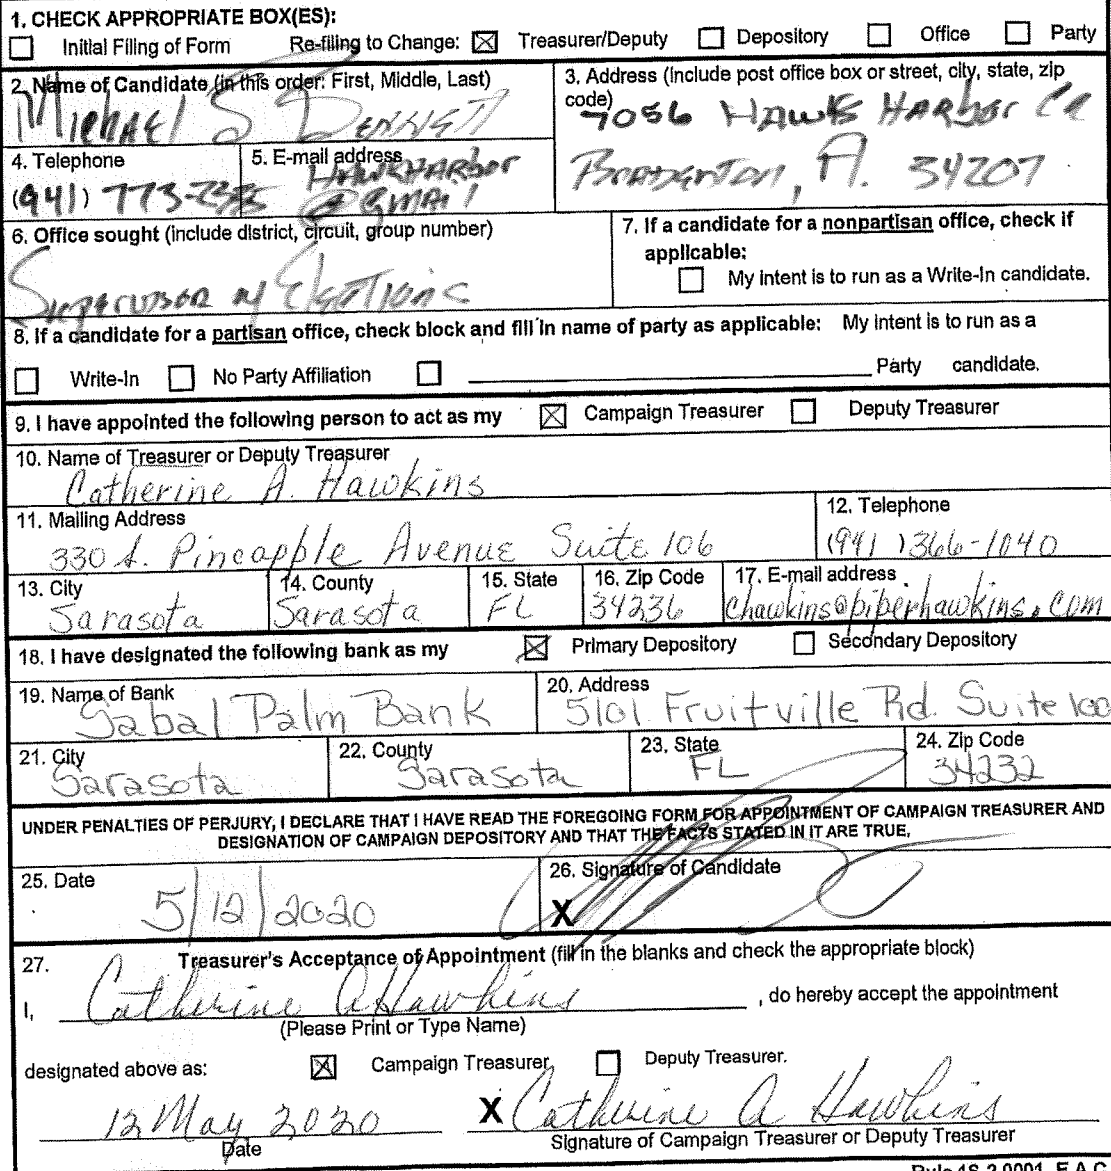 1. CHECK APPROPRIATE BOX(ES):
Initial Filing of Form Re-filing to Change: ☒ Treasurer/Deputy ☐ Depository ☐ Office ☐ Party
2. Name of Candidate (in this order: First, Middle, Last)
Michael S Bennett
3. Address (include post office box or street, city, state, zip
code)
7056 Hawks Harbor Cr
Bradenton, Fl. 34207
4. Telephone
(941) 773-
5. E-mail address
Hawkharbor
@gmail
6. Office sought (include district, circuit, group number)
Supervisor of Elections
7. If a candidate for a nonpartisan office, check if
applicable:
☐ My intent is to run as a Write-In candidate.
8. If a candidate for a partisan office, check block and fill in name of party as applicable: My intent is to run as a
☐ Write-In ☐ No Party Affiliation ☐ Party candidate.
9. I have appointed the following person to act as my ☒ Campaign Treasurer ☐ Deputy Treasurer
10. Name of Treasurer or Deputy Treasurer
Catherine A. Hawkins
11. Mailing Address
330 S. Pineapple Avenue Suite 106
12. Telephone
(941) 366-1040
13. City
Sarasota
14. County
Sarasota
15. State
FL
16. Zip Code
34236
17. E-mail address
chawkins@piperhawkins.com
18. I have designated the following bank as my ☒ Primary Depository ☐ Secondary Depository
19. Name of Bank
Sabal Palm Bank
20. Address
5101 Fruitville Rd. Suite 100
21. City
Sarasota
22. County
Sarasota
23. State
FL
24. Zip Code
34232
UNDER PENALTIES OF PERJURY, I DECLARE THAT I HAVE READ THE FOREGOING FORM FOR APPOINTMENT OF CAMPAIGN TREASURER AND
DESIGNATION OF CAMPAIGN DEPOSITORY AND THAT THE FACTS STATED IN IT ARE TRUE.
25. Date
5/12/2020
26. Signature of Candidate
X
27. Treasurer's Acceptance of Appointment (fill in the blanks and check the appropriate block)
I, Catherine A Hawkins , do hereby accept the appointment
(Please Print or Type Name)
designated above as: ☒ Campaign Treasurer ☐ Deputy Treasurer.
12 May 2020 X Catherine A Hawkins
Date Signature of Campaign Treasurer or Deputy Treasurer
Rule 1S-2.0001, F.A.C.